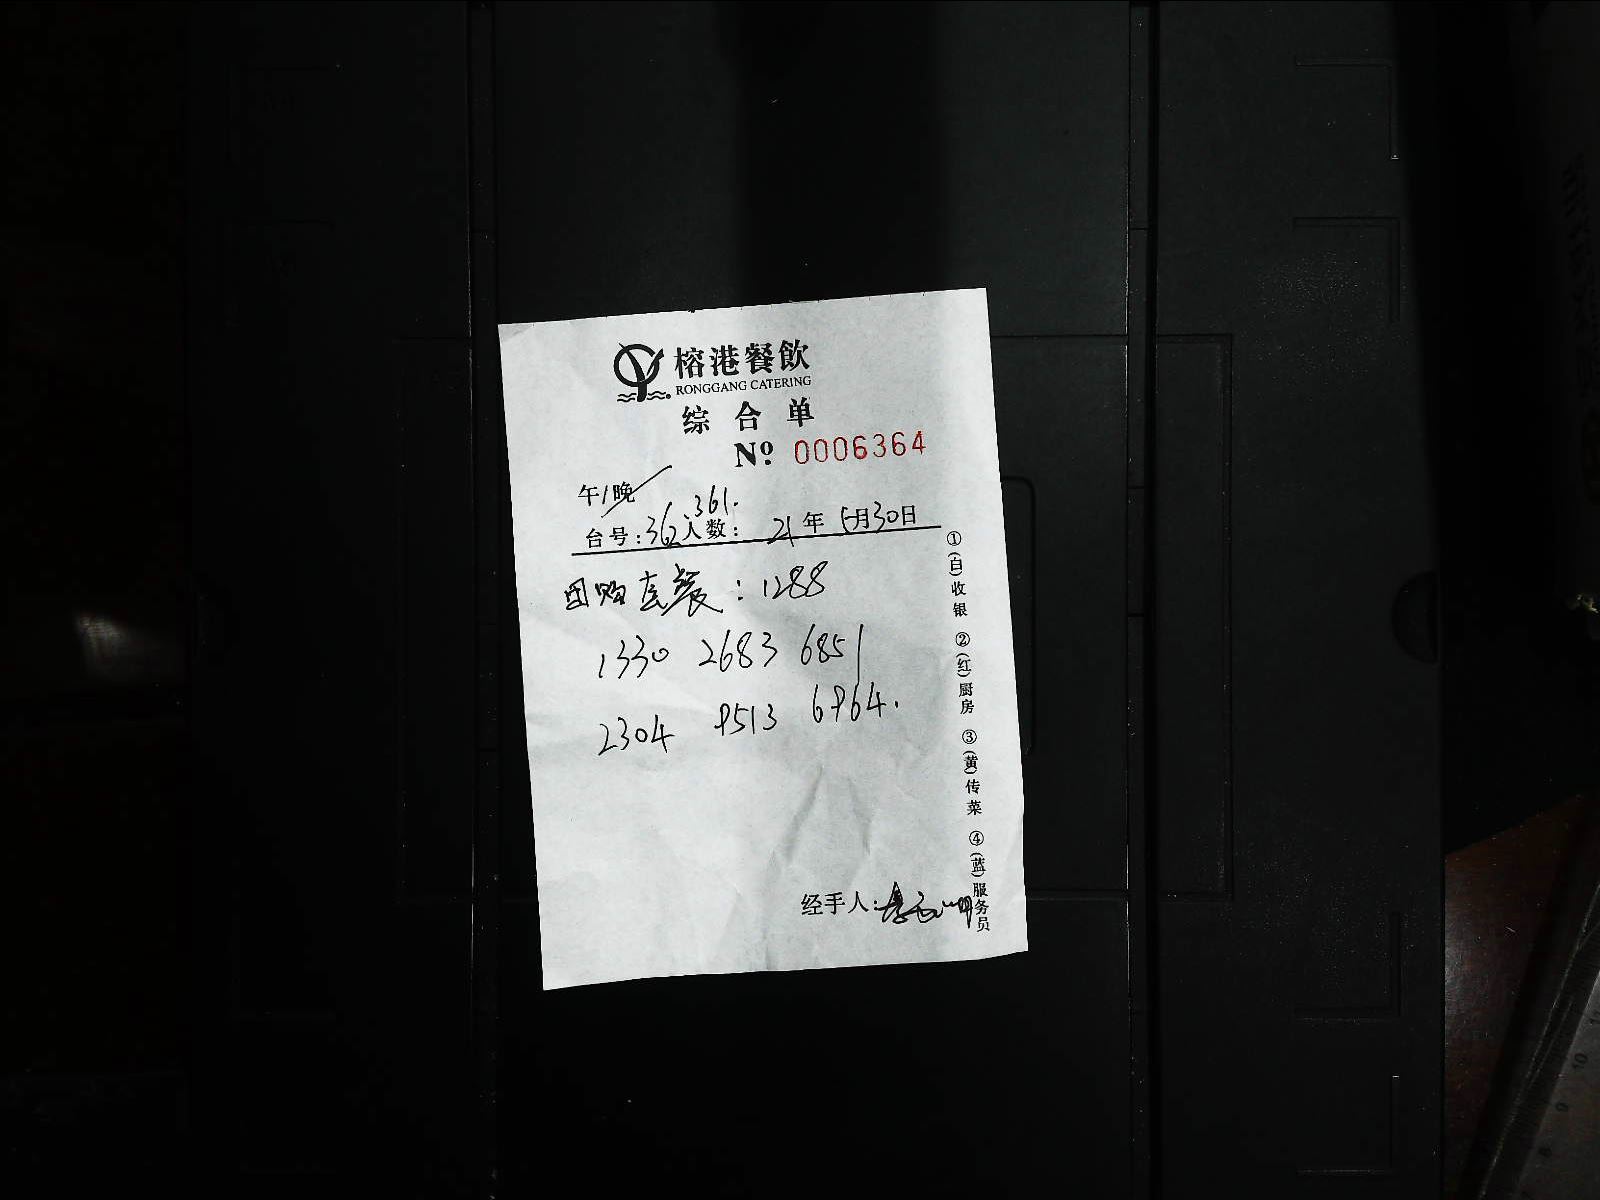 榕港餐飲
RONGGANG CATERING
综合单
Nº: 0006364
午/晚
361.
台号:362人数: 21年5月30日
团购套餐:1288
1330 2683 6851
2304 9513 6964.
经手人:
①(白)收银 ②(红)厨房 ③(黄)传菜 ④(蓝)服务员